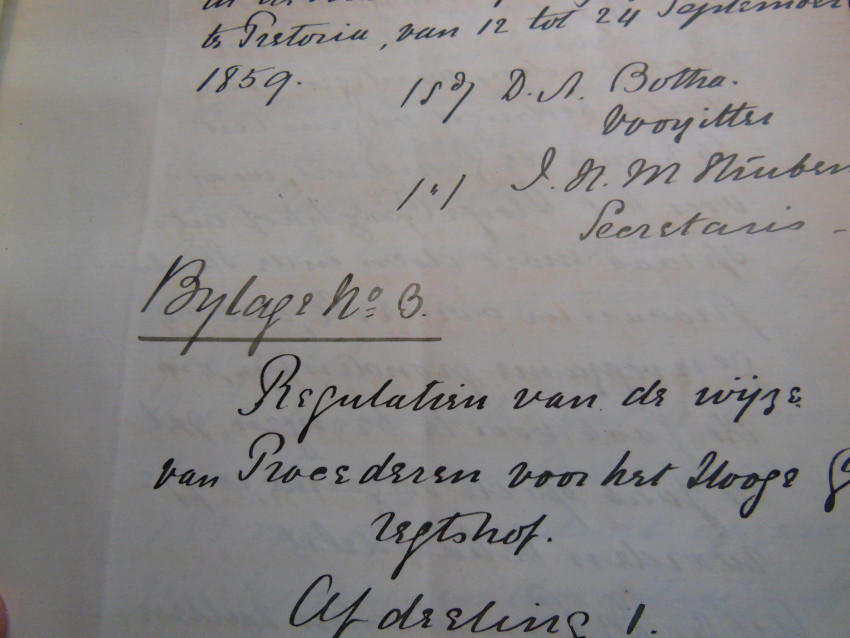 te Pretoria, van 12 tot 24 September
1859. /sd/ D. A. Botha.
Voorzitter
/"/ J. H. M Struben
Secretaris -
Bylage No 3.
Regulatien van de wijze
van Procederen voor het Hooge
regtshof.
Afdeeling 1.